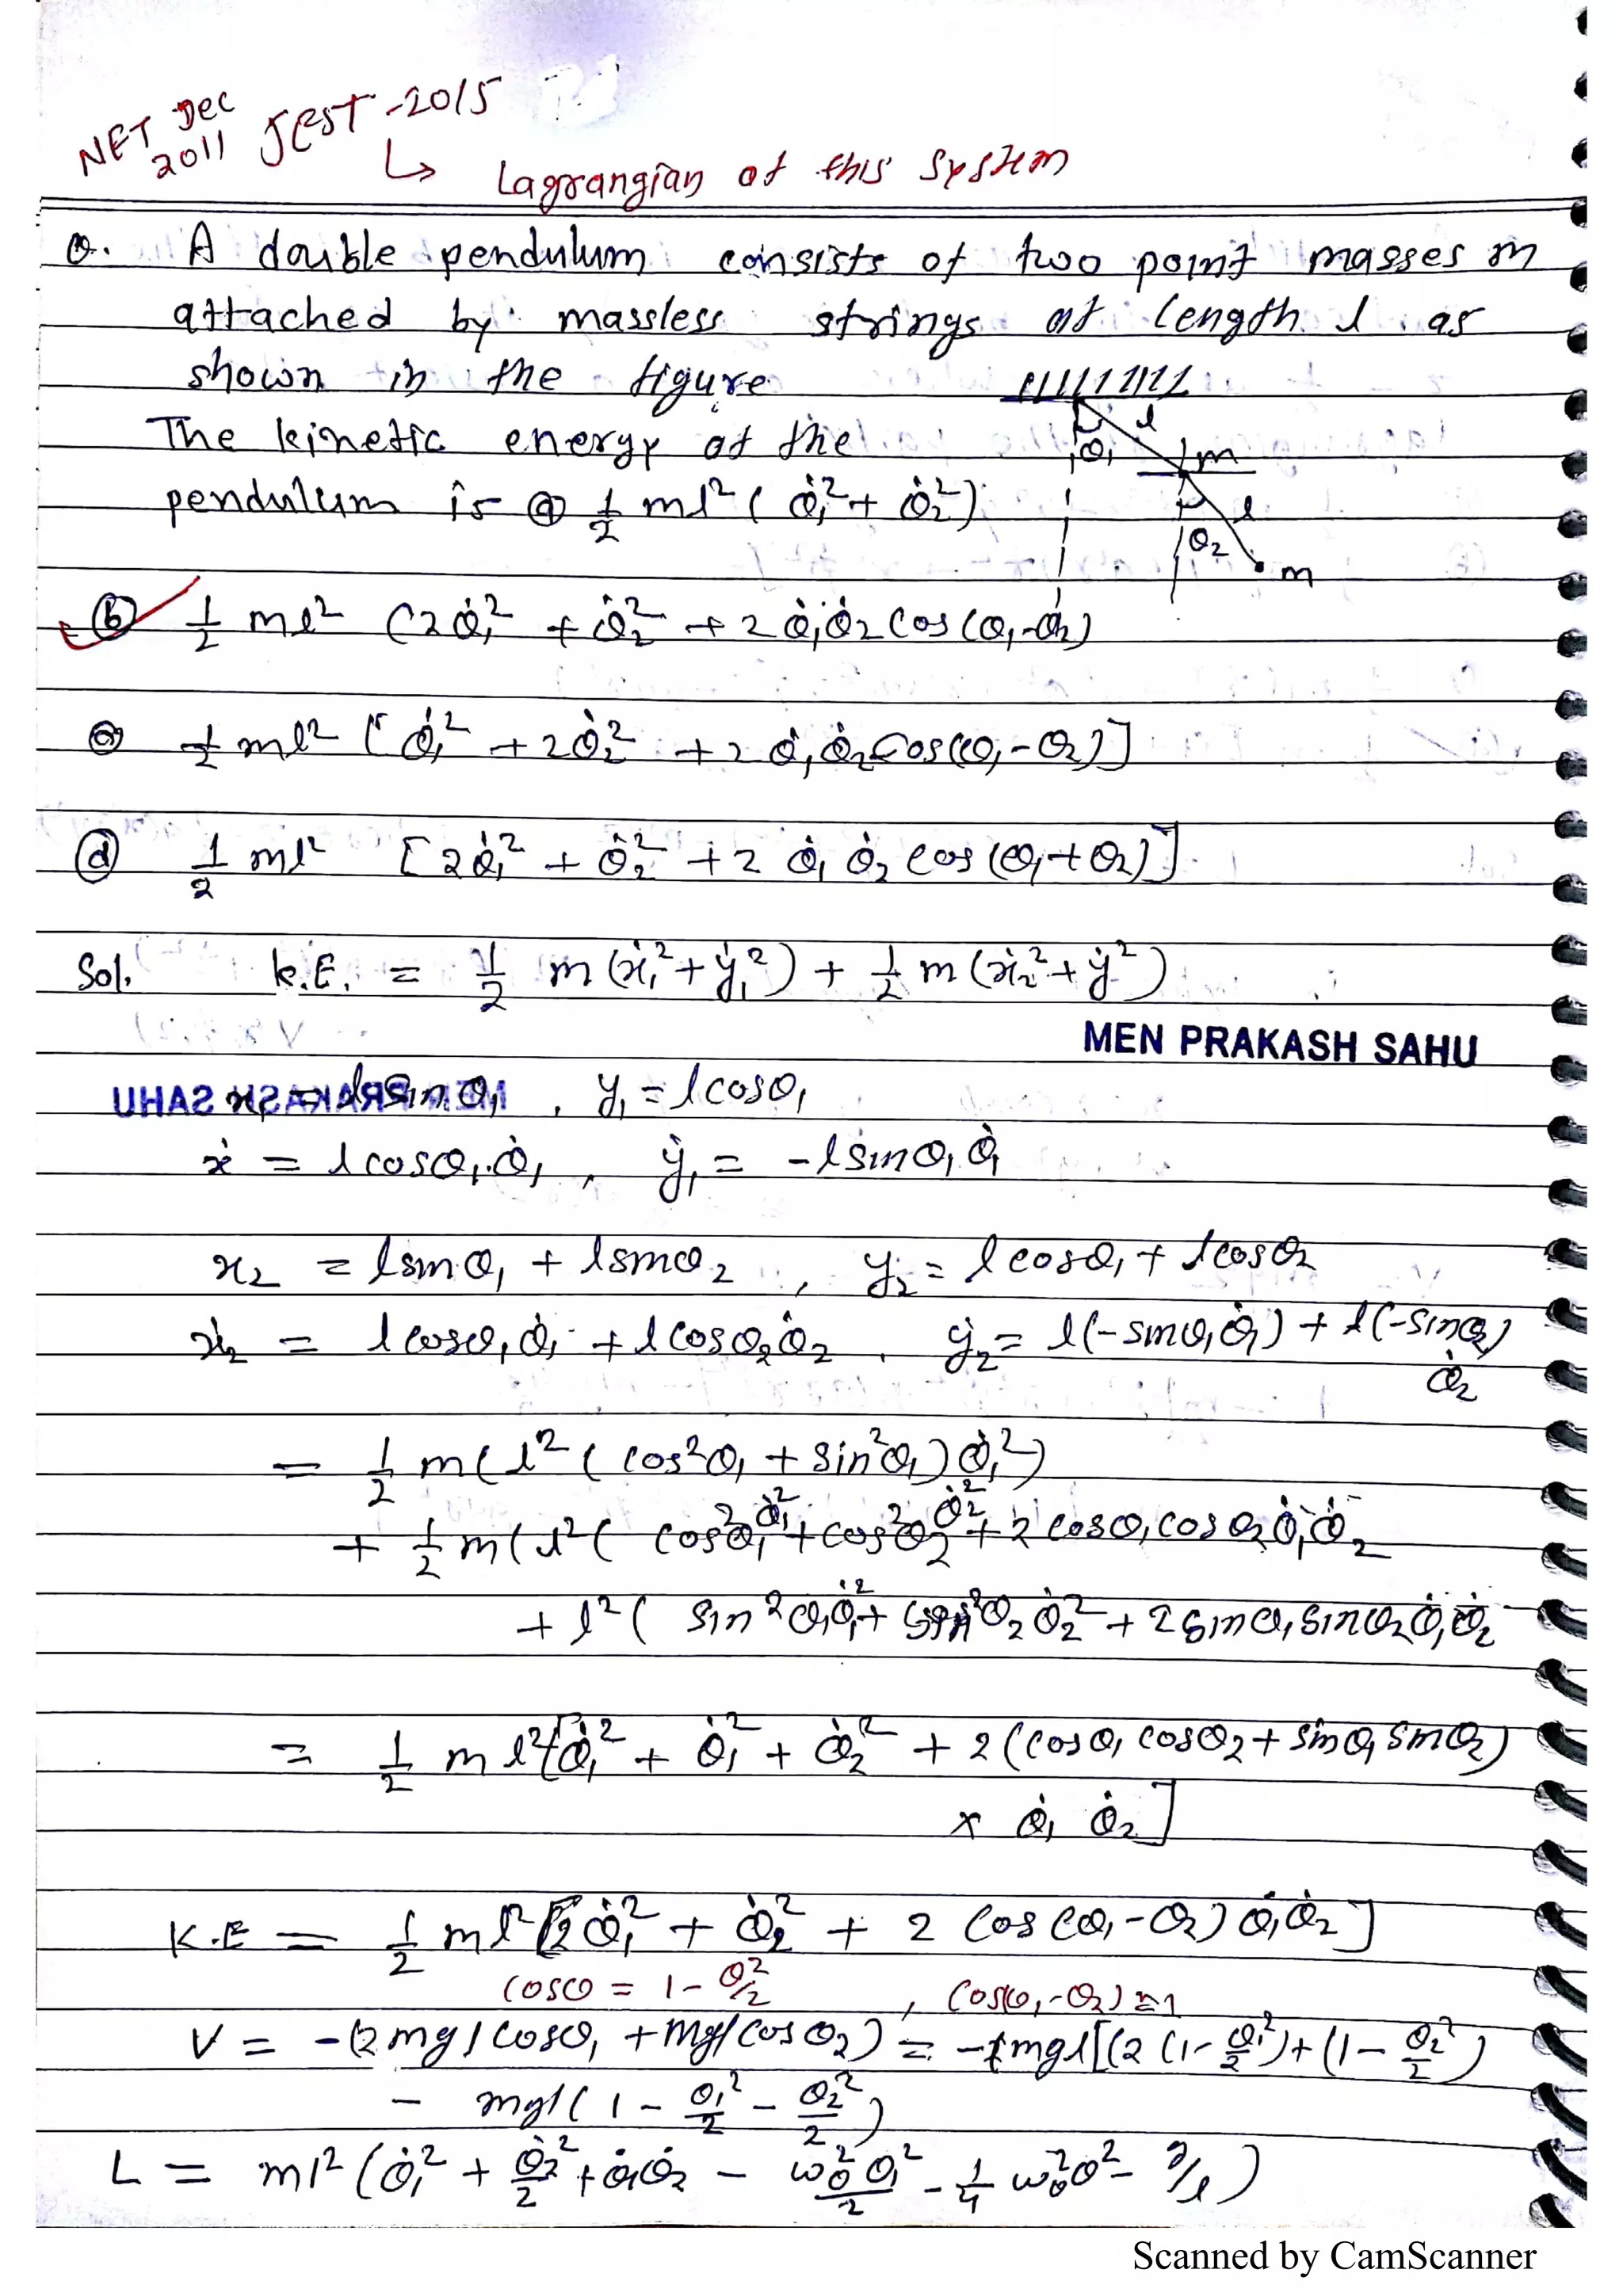 NET Dec 2011 JEST-2015
↳ Lagrangian of this system
Q. A double pendulum consists of two point masses m
attached by massless strings of length l as
shown in the figure
The kinetic energy of the
pendulum is ⓐ 1/2 ml² ( θ̇₁² + θ̇₂²)
l
θ₁
m
l
θ₂
m
ⓑ 1/2 ml² (2θ̇₁² + θ̇₂² + 2θ̇₁θ̇₂ cos(θ₁-θ₂)
ⓒ 1/2 ml² [θ̇₁² + 2θ̇₂² + 2 θ̇₁θ̇₂ cos(θ₁-θ₂)]
ⓓ 1/2 ml² [2θ̇₁² + θ̇₂² + 2 θ̇₁ θ̇₂ cos(θ₁+θ₂)]
Sol. K.E. = 1/2 m(ẋ₁²+ẏ₁²) + 1/2 m(ẋ₂²+ẏ²)
MEN PRAKASH SAHU
x₁ = l sinθ₁ , y₁ = l cosθ₁
ẋ = l cosθ₁.θ̇₁ , ẏ₁ = -l sinθ₁ θ̇₁
x₂ = l sinθ₁ + l sinθ₂ , y₂ = l cosθ₁ + l cosθ₂
ẋ₂ = l cosθ₁ θ̇₁ + l cosθ₂ θ̇₂ , ẏ₂ = l(-sinθ₁ θ̇₁) + l(-sinθ₂) θ̇₂
= 1/2 m(l² (cos²θ₁ + sin²θ₁) θ̇₁²)
+ 1/2 m(l²( cos²θ₁ θ̇₁² + cos²θ₂ θ̇₂² + 2 cosθ₁ cosθ₂ θ̇₁ θ̇₂
+ l²( sin²θ₁ θ̇₁² + sin²θ₂ θ̇₂² + 2 sinθ₁ sinθ₂ θ̇₁ θ̇₂
= 1/2 ml²[θ̇₁² + θ̇₁² + θ̇₂² + 2(cosθ₁ cosθ₂ + sinθ₁ sinθ₂)
× θ̇₁ θ̇₂]
K.E = 1/2 ml²[2θ̇₁² + θ̇₂² + 2 cos(θ₁-θ₂) θ̇₁θ̇₂]
cosθ = 1 - θ²/2 , cos(θ₁-θ₂) ≈ 1
V = -(2mgl cosθ₁ + mgl cosθ₂) = -mgl[(2(1-θ₁²/2) + (1-θ₂²/2)
- mgl(1 - θ₁²/2 - θ₂²/2)
L = ml²(θ̇₁² + θ̇₂²/2 + θ̇₁θ̇₂ - ω₀²θ₁²/2 - 1/4 ω₀²θ² - g/l)
Scanned by CamScanner